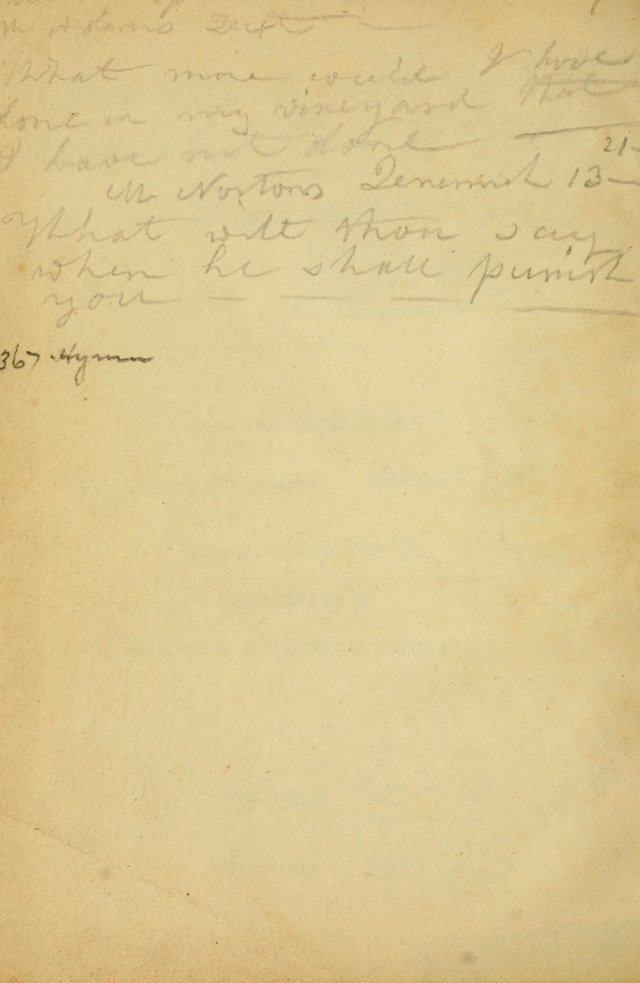 M Adams Text
What more could I have
done in my vineyard that
I have not done
21-
Mr Nortons Jeremiah 13-
What wilt thou say
when he shall punish
you
367 Hymn